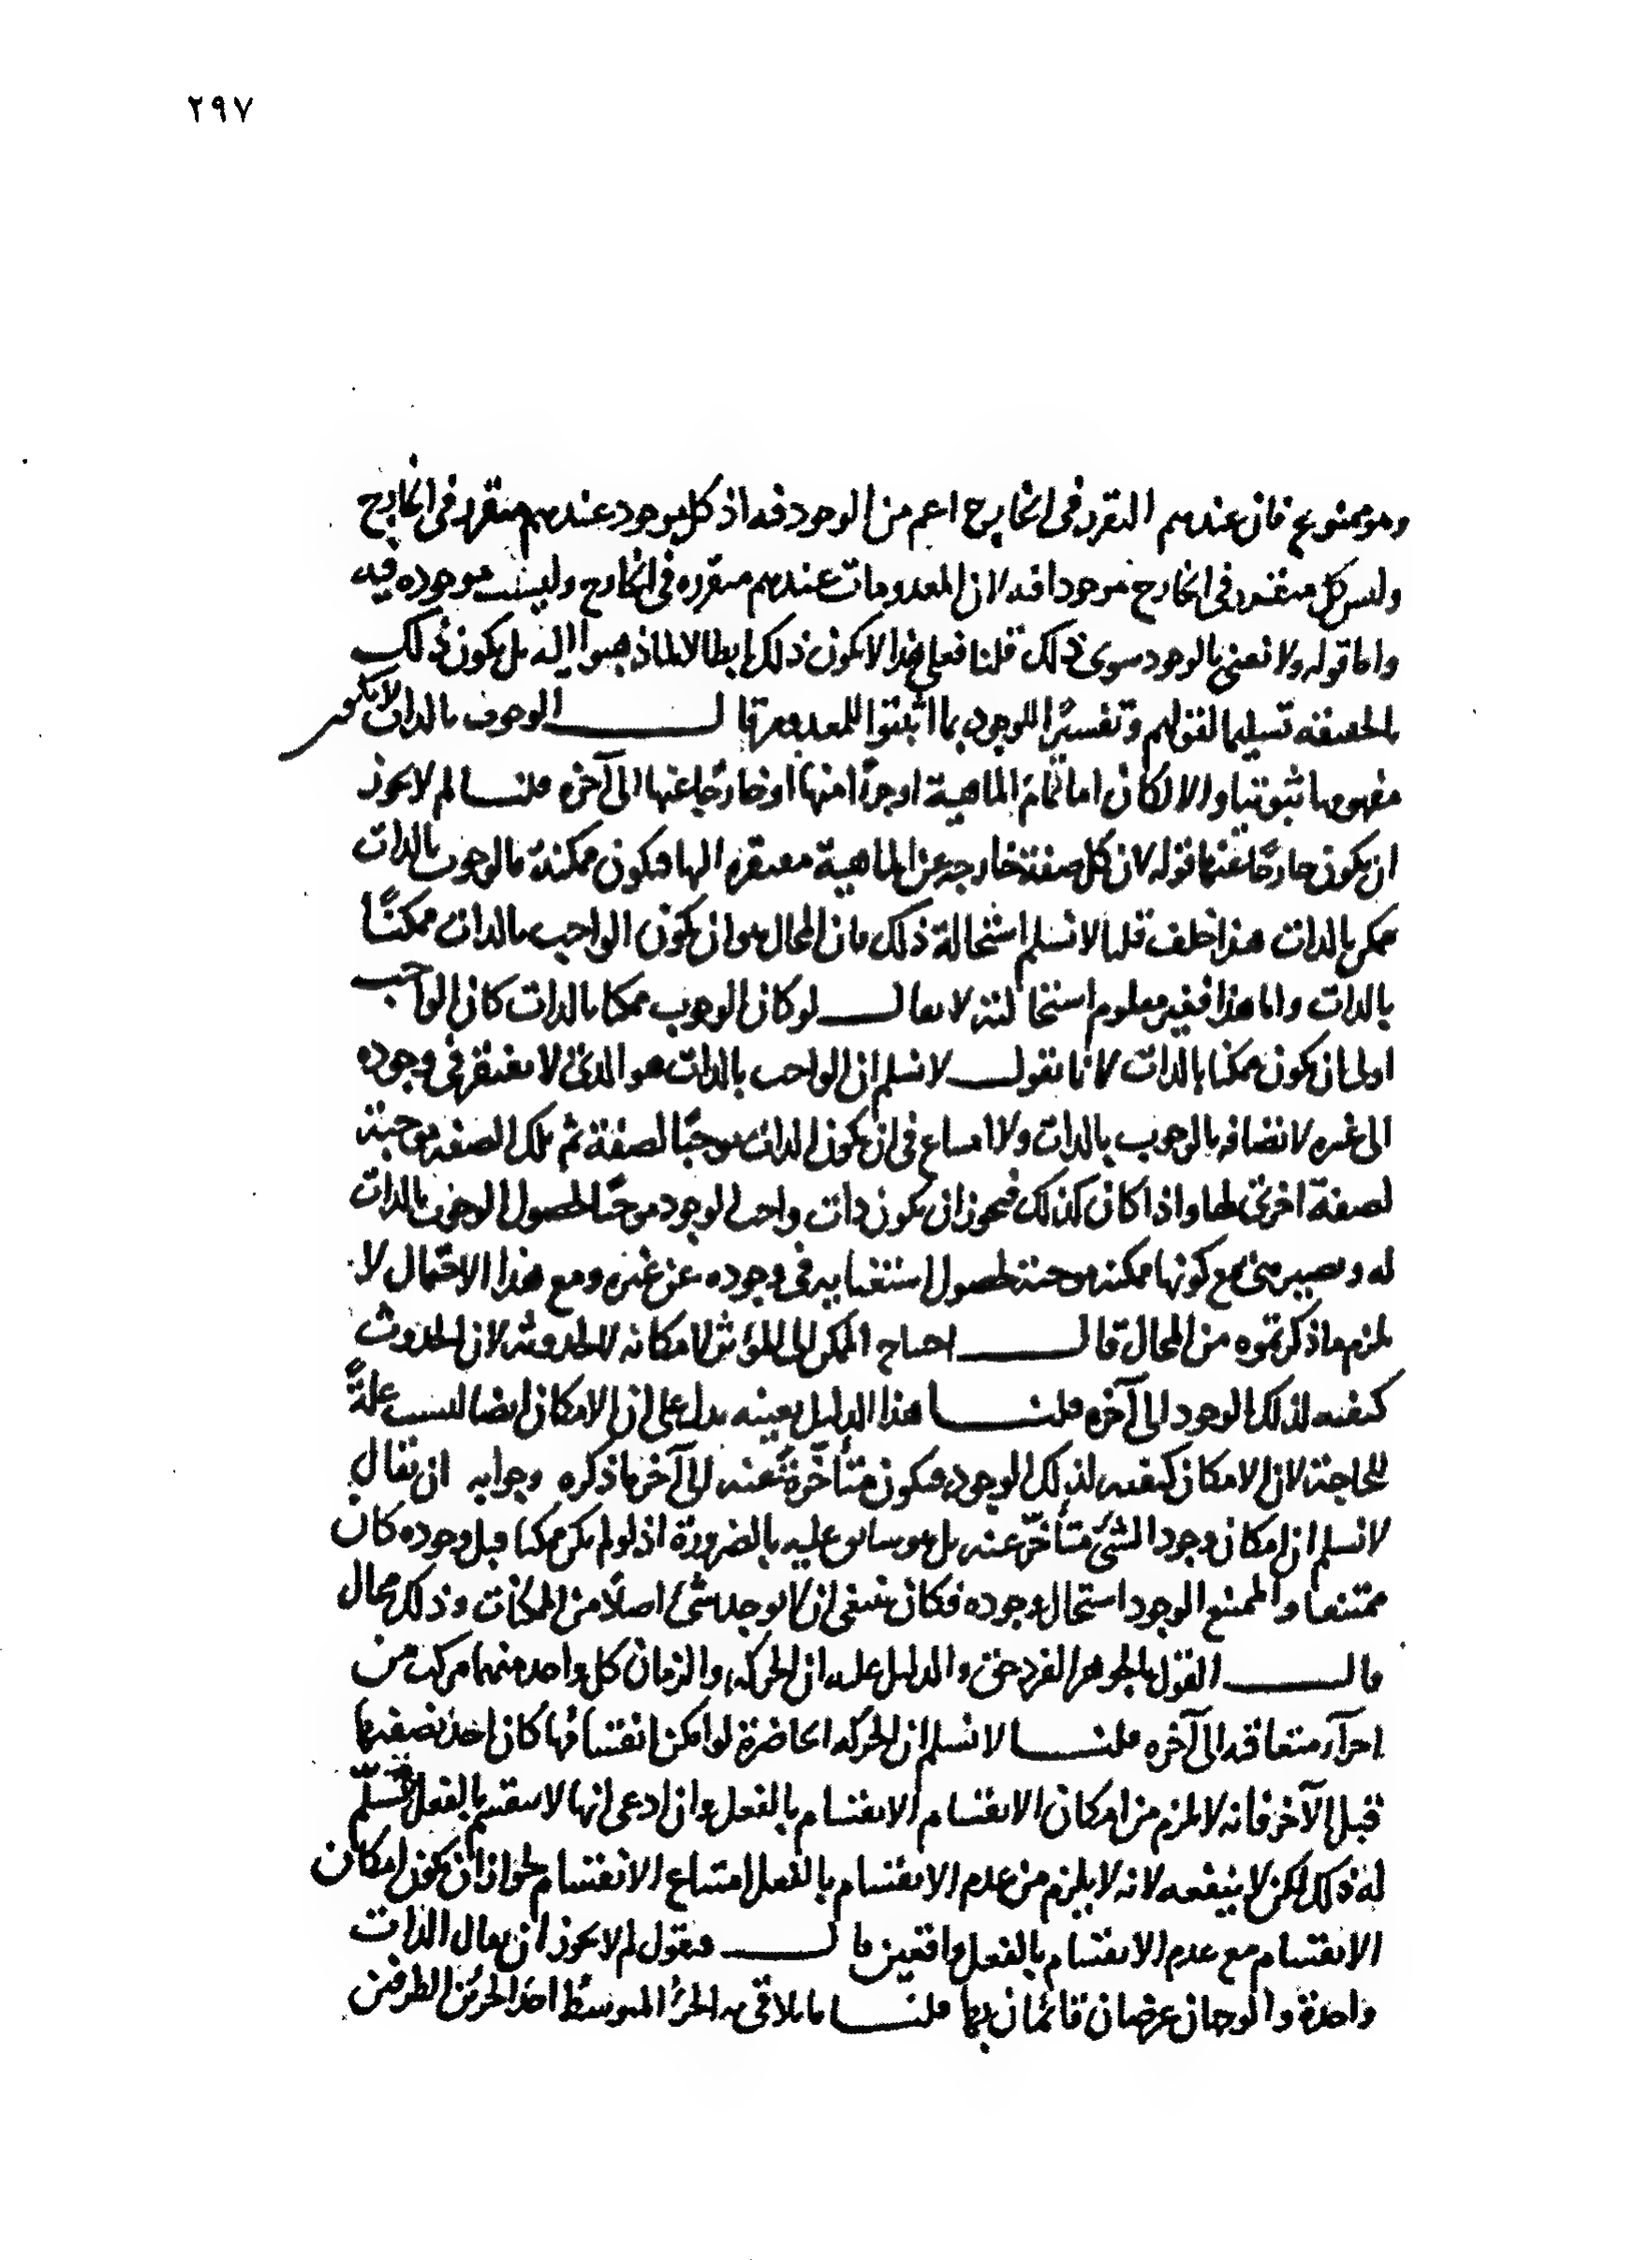 ٢٩٧
وهو ممنوع فان عندهم التقرر فى الخارج اعم من الوجود فيه اذ كل موجود عندهم متقرر فى الخارج
وليس كل متقرر فى الخارج موجودا فيه لان المعدومات عندهم متقررة فى الخارج وليست موجوده فيه
واما قوله ولا نعنى بالوجود سوى ذلك قلنا فعلى هذا لا يكون ذلك ابطالا لما ذهبوا اليه بل يكون ذلك
بالحقيقه تسليما لقولهم وتفسيرًا للوجود بما اثبتوا للمعدوم قال الوجوب بالذات لا يكون
مفهوما ثبوتيا والا لكان اما تمام الماهية او جزءًا منها او خارجًا عنها الى آخره قلنا لم لا يجوز
ان يكون خارجًا عنها قوله لان كل صفة خارجه عن الماهية مفتقرة اليها فيكون ممكنة فالوجوب بالذات
ممكن بالذات هذا خلف قلنا لا نسلم استحالة ذلك فان المحال هو ان يكون الواجب بالذات ممكنًا
بالذات واما هذا فغير معلوم استحالته لا يقال لو كان الوجوب ممكنا بالذات كان الواجب
اولى بان يكون ممكنا بالذات لانا نقول لا نسلم ان الواجب بالذات هو الذى لا يفتقر فى وجوده
الى غيره لاتصافه بالوجوب بالذات ولا امتناع فى ان يكون الذات موجبًا لصفة ثم تلك الصفه موجبة
لصفة اخرى لها واذا كان كذلك فيجوز ان يكون ذات واجب الوجود موجبًا لحصول الوجوب بالذات
له ويصير هى مع كونها ممكنه موجبة لحصول استغنايه فى وجوده عن غيره ومع هذا الاحتمال لا
يلزم ما ذكرتموه من المحال قال احتياج الممكن الى المؤثر لامكانه لا لحدوثه لان الحدوث
كيفيه لذلك الوجود الى آخره قلنا هذا الدليل بعينه يدل على ان الامكان ايضا ليست علةً
للحاجة لان الامكان كيفيه لذلك الوجود فيكون متأخرة عنه الى آخر ما ذكره وجوابه ان نقال
لا نسلم ان امكان وجود الشئ متأخّر عنه بل هو سابق عليه بالضرورة اذ لو لم يكن ممكنا قبل وجوده كان
ممتنعا والممتنع الوجود استحال وجوده فكان ينبغى ان لا يوجد شئ اصلًا من الممكنات وذلك محال
قال القول بالجوهر الفرد حق والدليل عليه ان الحركة والزمان كل واحد منهما مركب من
اجزآء متعاقبه الى آخره قلنا لا نسلم ان الحركه الحاضرة لو امكن انقسامها كان احد نصفيها
قبل الآخر فانه لا يلزم من امكان الانقسام الانقسام بالفعل وان ادعى انها لا ينقسم بالفعل فنسلّم
له ذلك لكن لا ينفعه لانه لا يلزم من عدم الانقسام بالفعل امتناع الانقسام لجواز ان يكون امكان
الانقسام مع عدم الانقسام بالفعل واقعين قال فنقول لم لا يجوز ان يقال الذات
واحدة والوجهان عرضان قائمان بها قلنا ما يلاقى به الجزء المتوسط احد الجزئين الطرفين